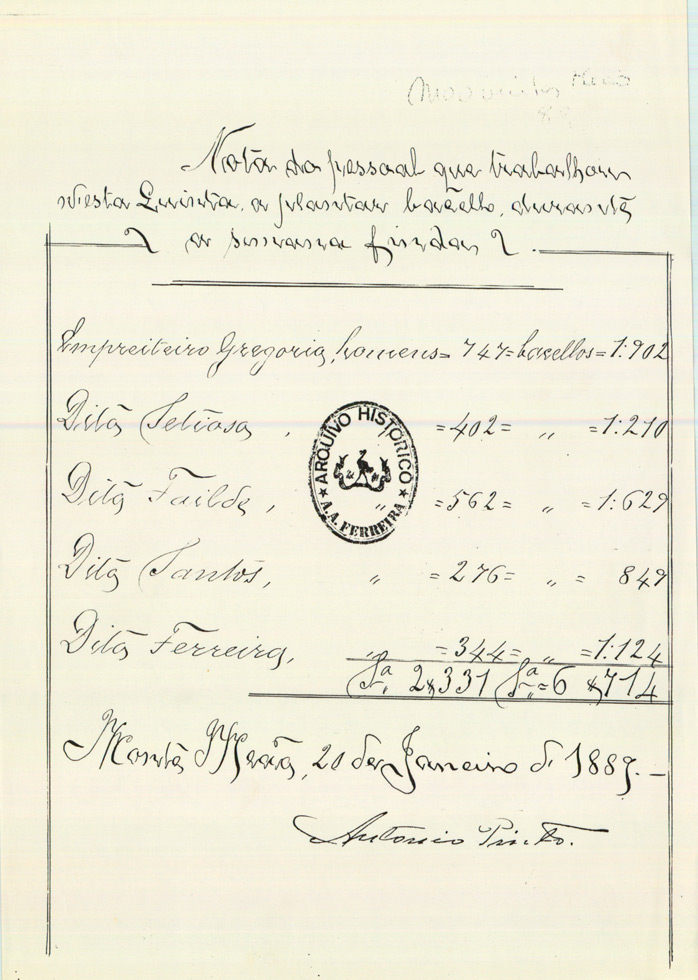 Nota do pessoal que trabalhou
n'esta Quinta, a plantar bacello, durante
a semana finda
Empreiteiro Gregorio, homens = 747 = bacellos = 1:902
Dito Feliosa, " = 402 = " = 1:210
Dito Failde, " = 562 = " = 1:629
Dito Santos, " = 276 = " = 849
Dito Ferreira, " = 344 = " = 1:124
Sª 2$331 Sª = 6$714
Monte Meão, 20 de Janeiro de 1889. —
Antonio Pinto.
ARQUIVO HISTÓRICO
A. A. FERREIRA